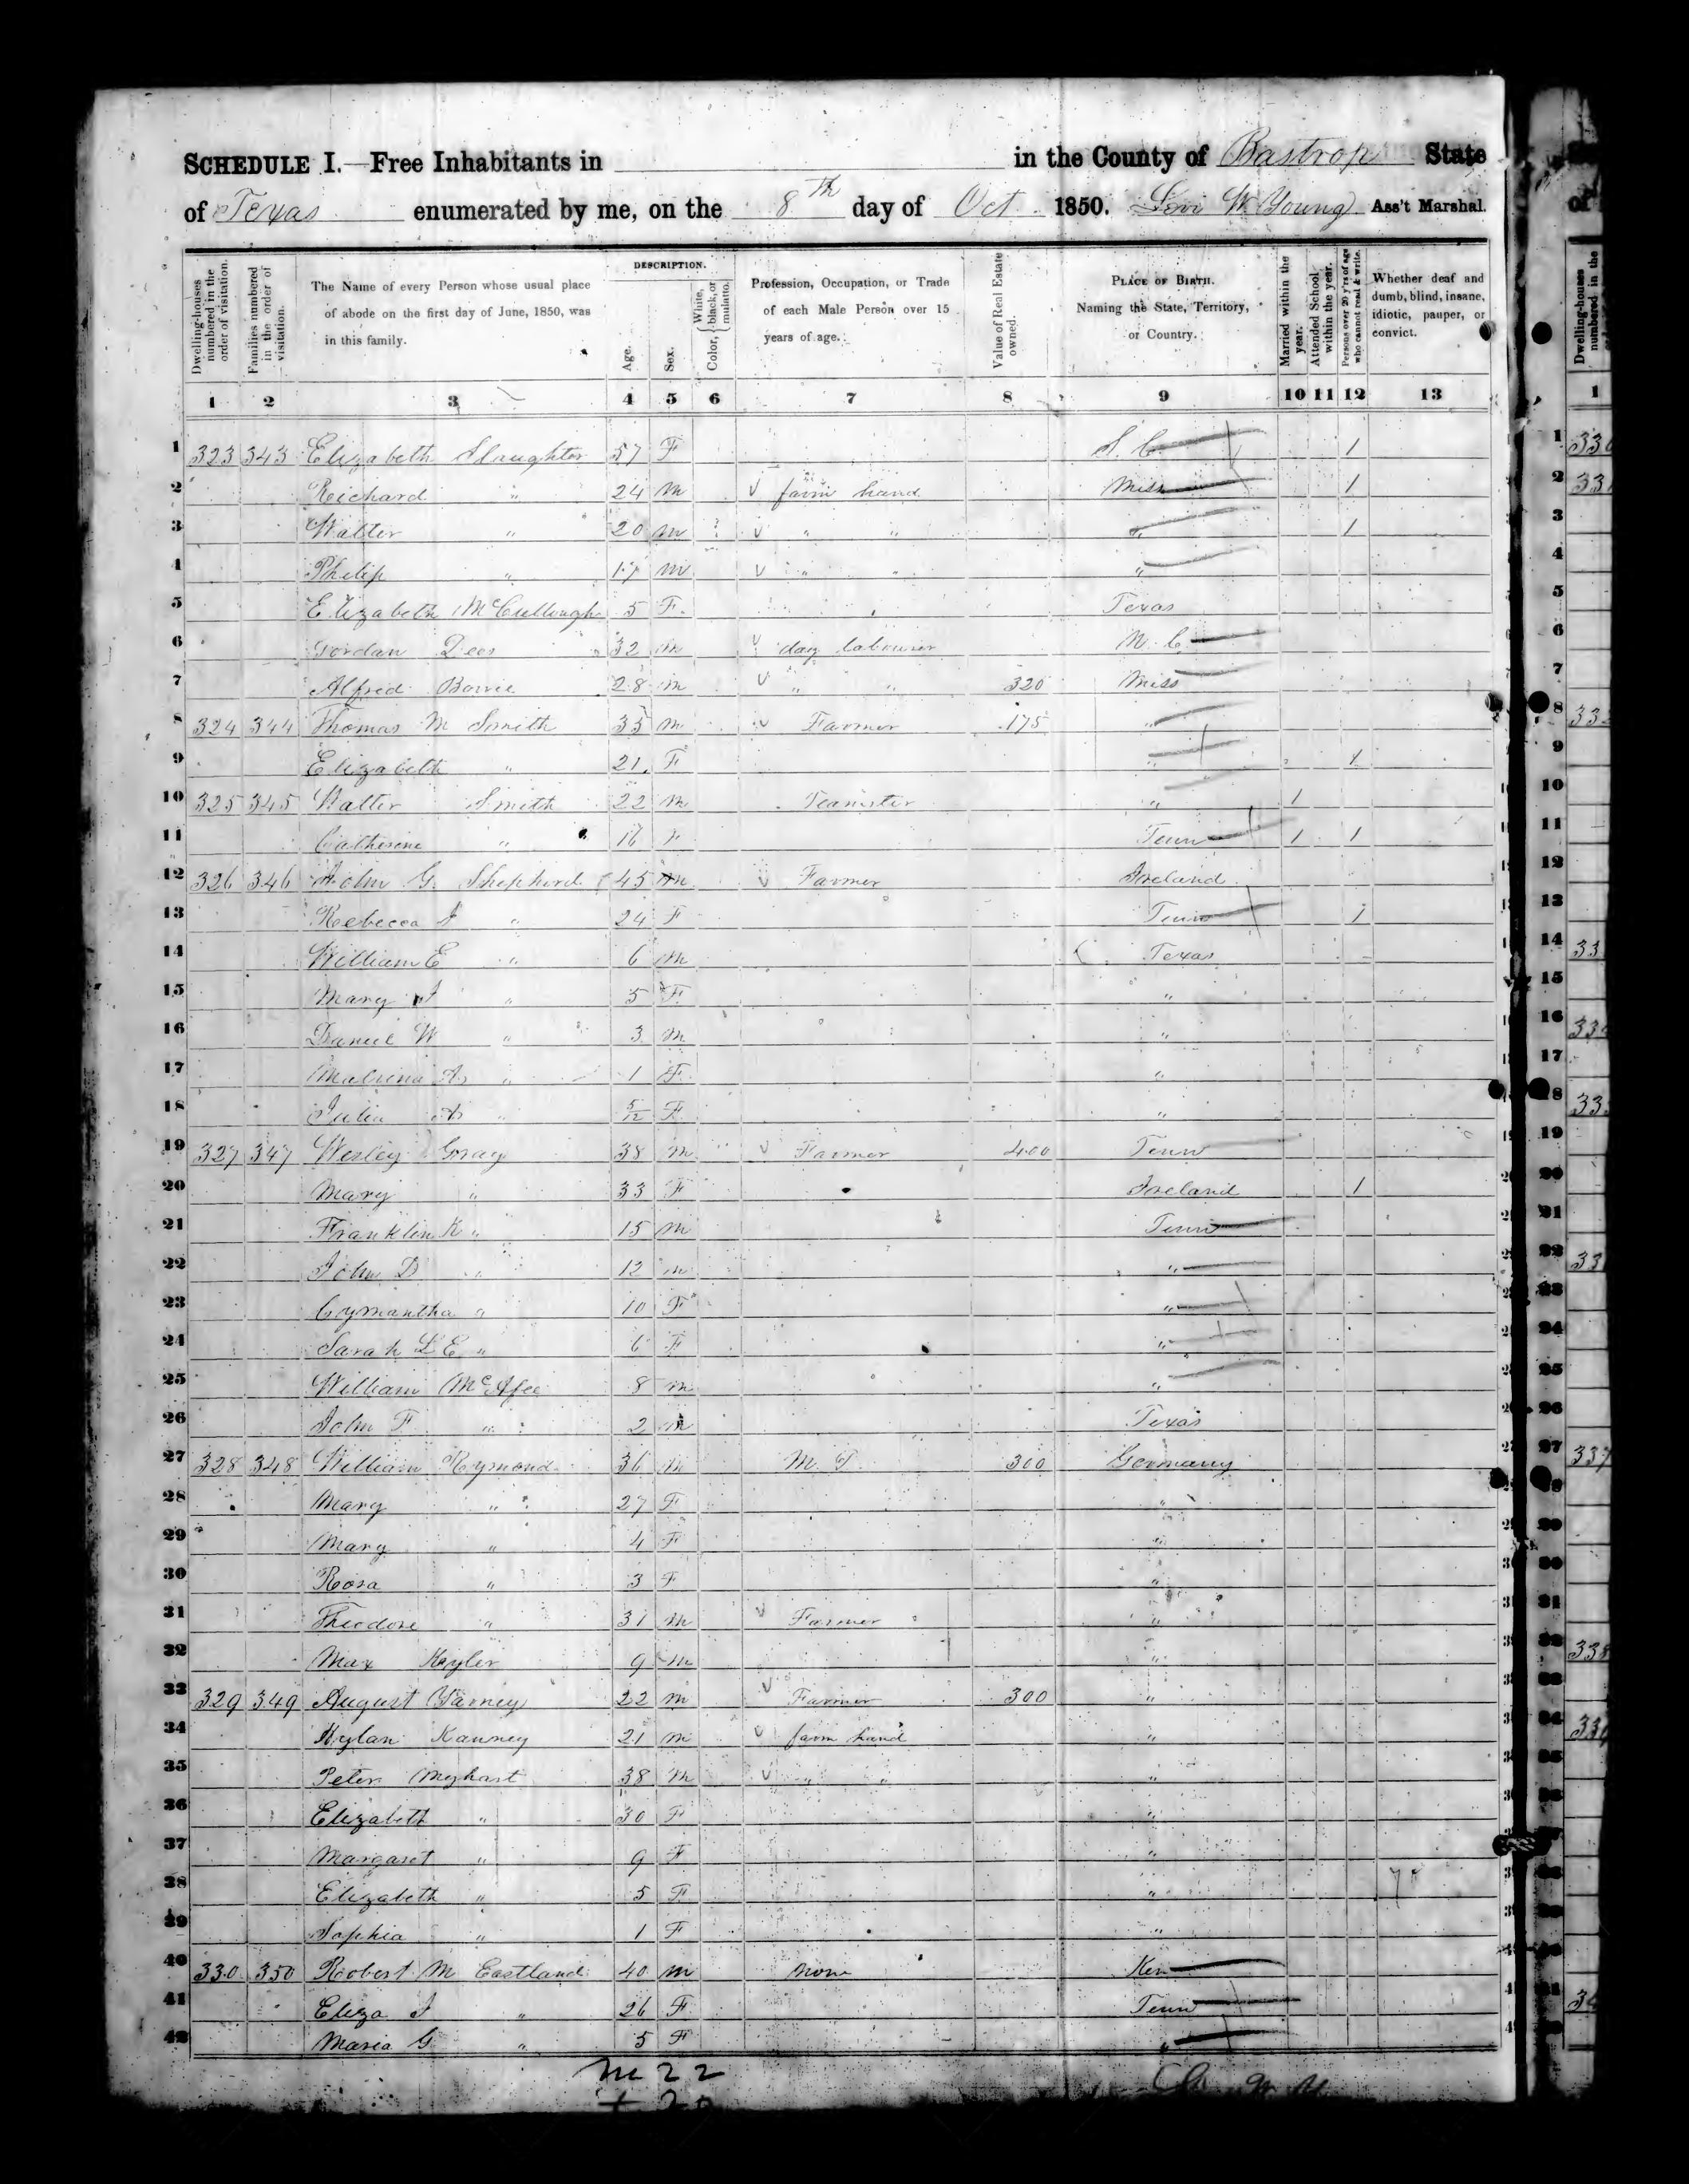 SCHEDULE I.—Free Inhabitants in in the County of Bastrop State
of Texas enumerated by me, on the 8th day of Oct 1850. Levi W Young Ass't Marshal.
Dwelling-houses numbered in the order of visitation.
Families numbered in the order of visitation.
The Name of every Person whose usual place of abode on the first day of June, 1850, was in this family.
DESCRIPTION.
Age.
Sex.
Color, { White, black, or mulatto.
Profession, Occupation, or Trade of each Male Person over 15 years of age.
Value of Real Estate owned.
PLACE OF BIRTH. Naming the State, Territory, or Country.
Married within the year.
Attended School within the year.
Persons over 20 y'rs of age who cannot read & write.
Whether deaf and dumb, blind, insane, idiotic, pauper, or convict.
1 2 3 4 5 6 7 8 9 10 11 12 13
1 323 343 Elizabeth Slaughter 57 F S. C. 1
2 Reichard " 24 m farm hand Miss 1
3 Walter " 20 m " " " 1
4 Philip " 17 m " " "
5 Elizabeth McCullough 5 F Texas
6 Gordan Dees 32 m day labourer N. C.
7 Alfred 28 m " " 320 Miss
8 324 344 Thomas M Smith 33 m Farmer 175 "
9 Elizabeth " 21 F " 1
10 325 345 Walter Smith 22 m Teamster " 1
11 Catherine " 16 F Tenn 1 1
12 326 346 John G. Shepherd 45 m Farmer Ireland
13 Rebecca J " 24 F Tenn 1
14 William E " 6 m Texas
15 Mary J " 5 F "
16 Daniel W " 3 m "
17 Malvina A " 1 F "
18 Julia A " 5/12 F "
19 327 347 Wesley Gray 38 m Farmer 400 Tenn
20 Mary " 33 F Ireland 1
21 Franklin K " 15 m Tenn
22 John D " 12 m "
23 Cymantha " 10 F "
24 Sarah L E " 6 F "
25 William McAfee 8 m "
26 John F " 2 m Texas
27 328 348 William Rymond 36 m M. T. 300 Germany
28 Mary " 27 F "
29 Mary " 4 F "
30 Rosa " 3 F "
31 Theodore " 31 m Farmer "
32 Max Keyler 9 m "
33 329 349 August 22 m Farmer 300 "
34 Kanney 21 m farm hand "
35 Peter Meyhart 38 m " " "
36 Elizabeth " 30 F "
37 Margaret " 9 F "
38 Elizabeth " 5 F "
39 Sophia " 1 F "
40 330 350 Robert M Eastland 40 m None Ken
41 Eliza J " 26 F Tenn
42 Maria G " 5 F "
m 22